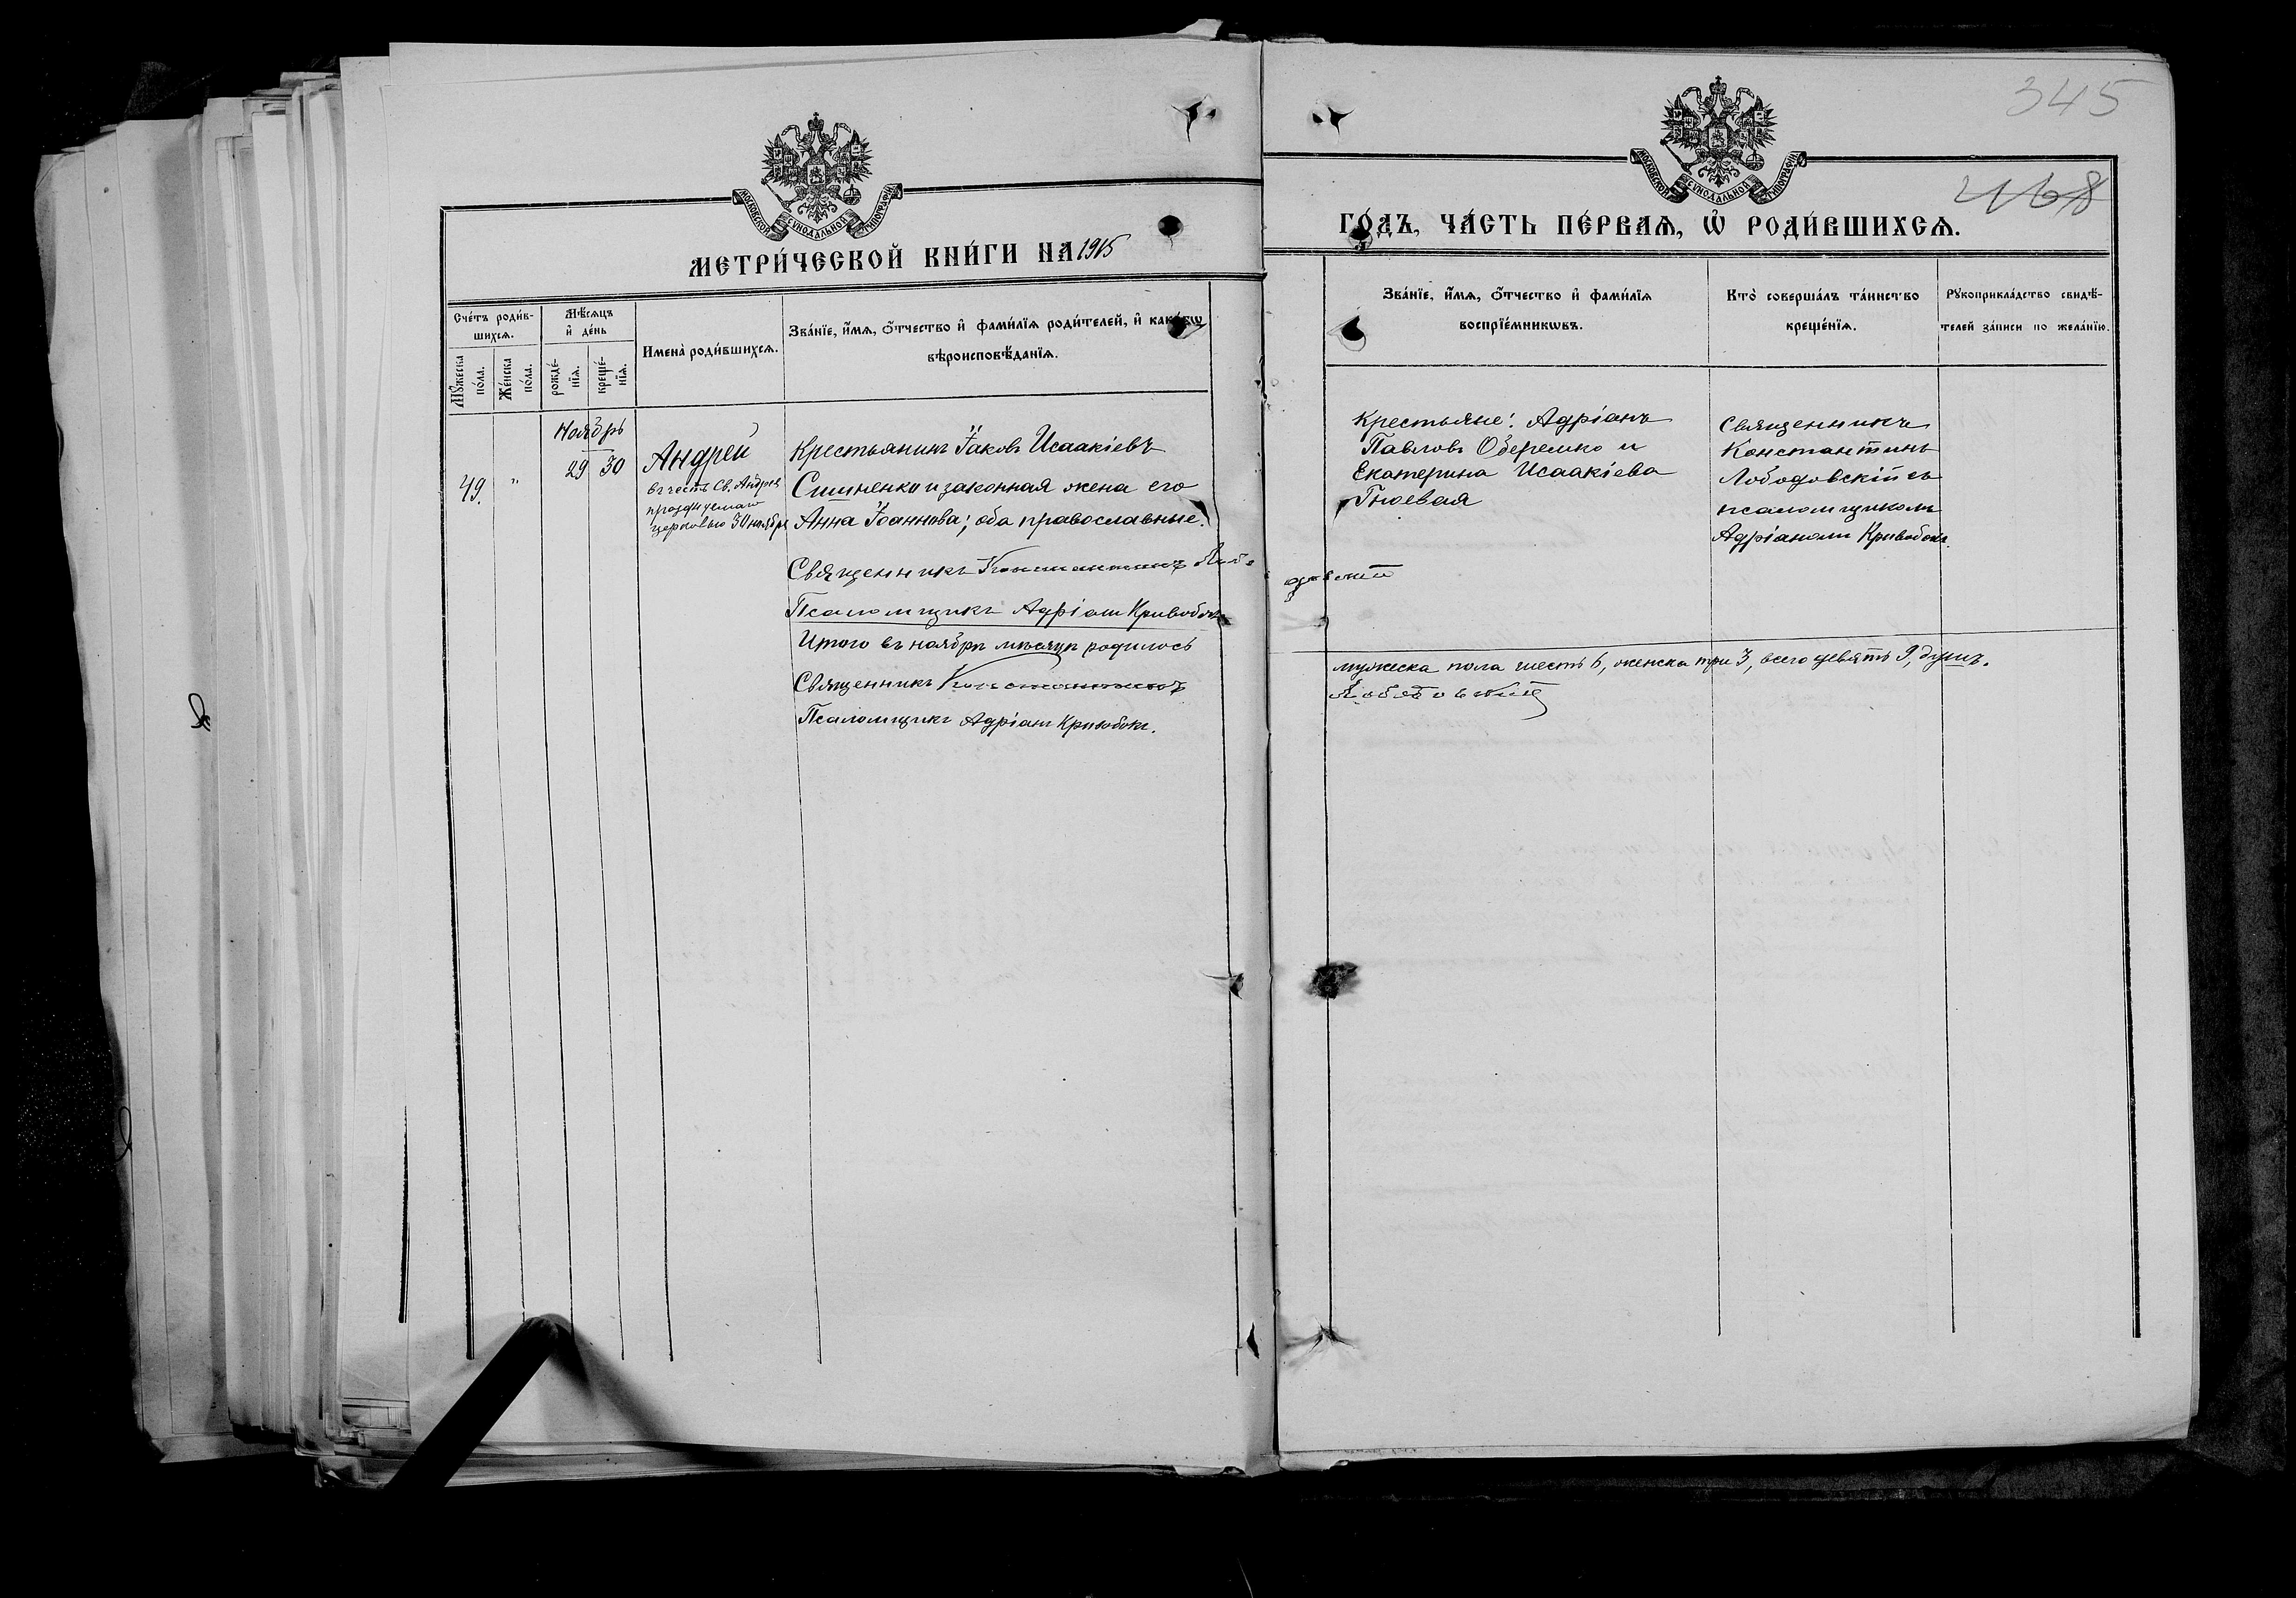 345
468
МОСКОВСКОЙ СѴНОДАЛЬНОЙ ТИПОГРАФІИ
МОСКОВСКОЙ СѴНОДАЛЬНОЙ ТИПОГРАФІИ
МЕТРИ́ЧЕСКОЙ КНИ́ГИ НА 1915
ГО́ДЪ, ЧА́СТЬ ПЕ́РВАЯ, Ѡ РОДИ́ВШИХСЯ.
Сче́тъ роди́в-
шихся.
Мꙋ́жеска
по́ла.
Же́нска
по́ла.
Мѣ́сяцъ
и҆ де́нь
рожде́-
нїя.
креще́-
нїя.
Имена̀ роди́вшихся.
Зва́нїе, и҆́мя, о҆́тчество и҆ фами́лїя роди́телей, и҆ како́гѡ
вѣроисповѣ́данїя.
Зва́нїе, и҆́мя, о҆́тчество и҆ фами́лїя
воспрїе́мникѡвъ.
Кто̀ соверша́лъ та́инство
креще́нїя.
Рꙋкоприкла́дство свидѣ́-
телей за́писи по жела́нїю.
Ноябрь
49. " 29 30
Андрей
въ честь Св. Андрея
празднуемаго
церковью 30 ноября
Крестьянинъ Іаковъ Исаакіевъ
и законная жена его
Анна Іоаннова; оба православные.
Крестьяне: Адріанъ
Павловъ Оберемко и
Екатерина Исаакіева
Гноевая
Священникъ
Константинъ
Лободовскій съ
псаломщикомъ
Адріаномъ Кривобокъ.
Священникъ Константинъ Лобо
довскій
Псаломщикъ Адріанъ Кривобокъ
Итого въ ноябрѣ мѣсяцѣ родилось
мужеска пола шесть 6, женска три 3, всего девять 9, душъ.
Священникъ Константинъ
Лободовскій
Псаломщикъ Адріанъ Кривобокъ.